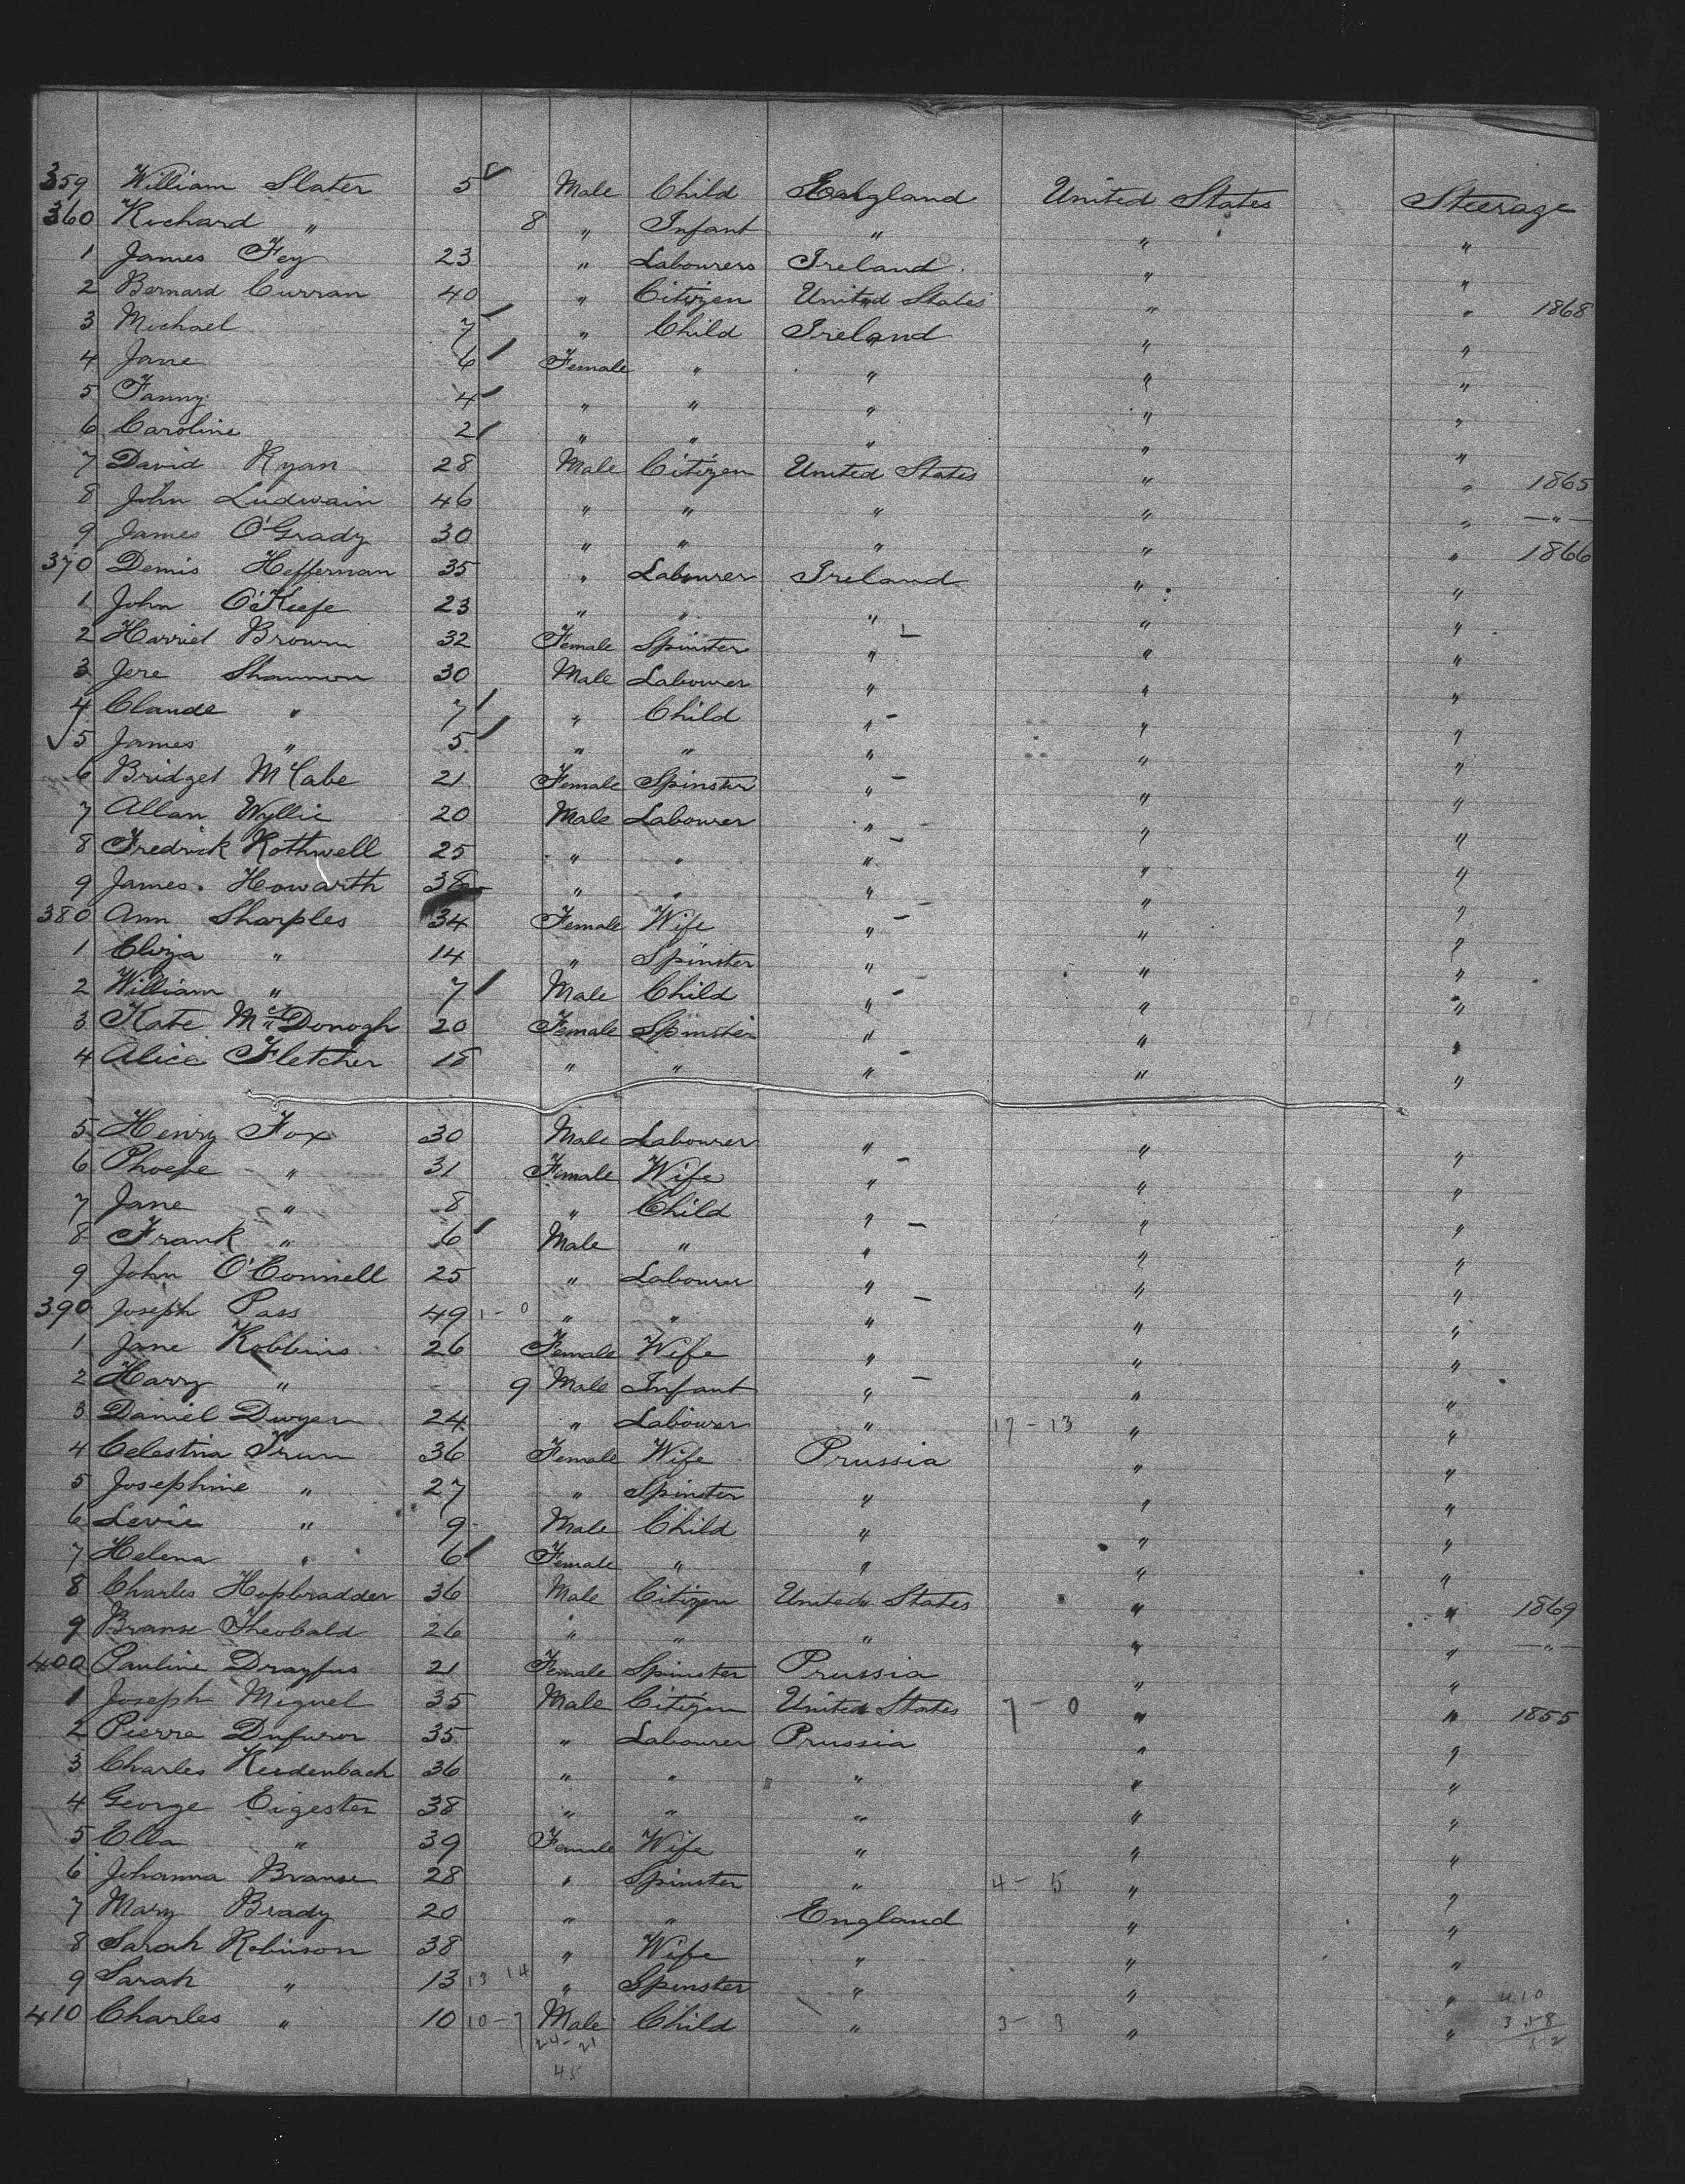 359 William Slater 5 Male Child England United States Steerage
360 Richard " 8 " Infant " " "
1 James Fey 23 " Labourers Ireland " "
2 Bernard Curran 40 " Citizen United States " " 1868
3 Michael 7 " Child Ireland " "
4 Jane 6 Female " " " "
5 Fanny 4 " " " " "
6 Caroline 2 " " " " "
7 David Ryan 28 Male Citizen United States " " 1865
8 John Ludwain 46 " " " " " — " —
9 James O'Grady 30 " " " " " 1866
370 Demis Heffernan 35 " Labourer Ireland " "
1 John O'Keefe 23 " " " " "
2 Harriet Brown 32 Female Spinster " " "
3 Jere Shannon 30 Male Labourer " " "
4 Claude " 7 " Child " " "
√5 James " 5 " " " " "
6 Bridget McCabe 21 Female Spinster " " "
7 Allan Wyllie 20 Male Labourer " " "
8 Fredrick Rothwell 25 " " " " "
9 James Howarth 38 " " " " "
380 Ann Sharples 34 Female Wife " " "
1 Eliza " 14 " Spinster " " "
2 William " 7 Male Child " " "
3 Kate McDonogh 20 Female Spinster " " "
4 Alice Fletcher 18 " " " " "
5 Henry Fox 30 Male Labourer " " "
6 Phoebe " 31 Female Wife " " "
7 Jane " 8 " Child " " "
8 Frank " 6 Male " " " "
9 John O'Connell 25 " Labourer " " "
390 Joseph Pass 49 1 - 0 " " " " "
1 Jane Robbins 26 Female Wife " " "
2 Harry " 9 Male Infant " " "
3 Daniel Dwyer 24 " Labourer " 17 - 13 " "
4 Celestina Trum 36 Female Wife Prussia " "
5 Josephine " 27 " Spinster " " "
6 Levie " 9 Male Child " " "
7 Helena " 6 Female " " " "
8 Charles Hopbradder 36 Male Citizen United States " " 1869
9 Branse Theobald 26 " " " " " — " —
400 Pauline Drayfus 21 Female Spinster Prussia " "
1 Joseph Miguel 35 Male Citizen United States 7 - 0 " " 1855
2 Pierre Dufuror 35 " Labourer Prussia " "
3 Charles Keidenbach 36 " " " " "
4 George Eigester 38 " " " " "
5 Ella " 39 Female Wife " " "
6 Johanna Branse 28 " Spinster " 4 - 5 " "
7 Mary Brady 20 " " England " "
8 Sarah Robinson 38 " Wife " " "
9 Sarah " 13 13 14 " Spinster " " " 410
410 Charles " 10 10 - 7 Male Child " 3 - 3 " " 358
24 - 21 52
45